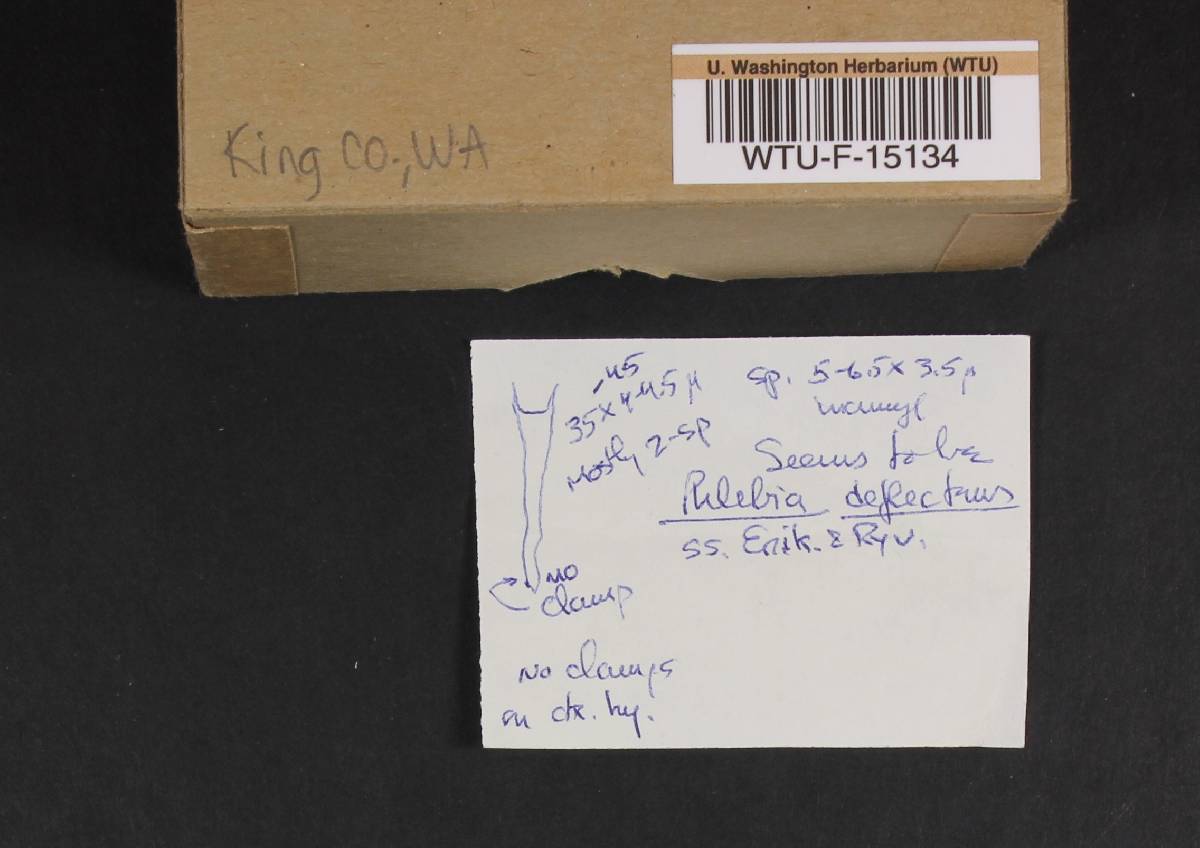 King Co., WA
U. Washington Herbarium (WTU)
WTU-F-15134
-45
35 x 4-4.5 µ
mostly 2-sp
sp. 5-6.5 x 3.5 µ
inamyl
Seems to be
Phlebia deflectans
ss. Erik. & Ryv.
no
clamp
No clamps
on ctx. hy.